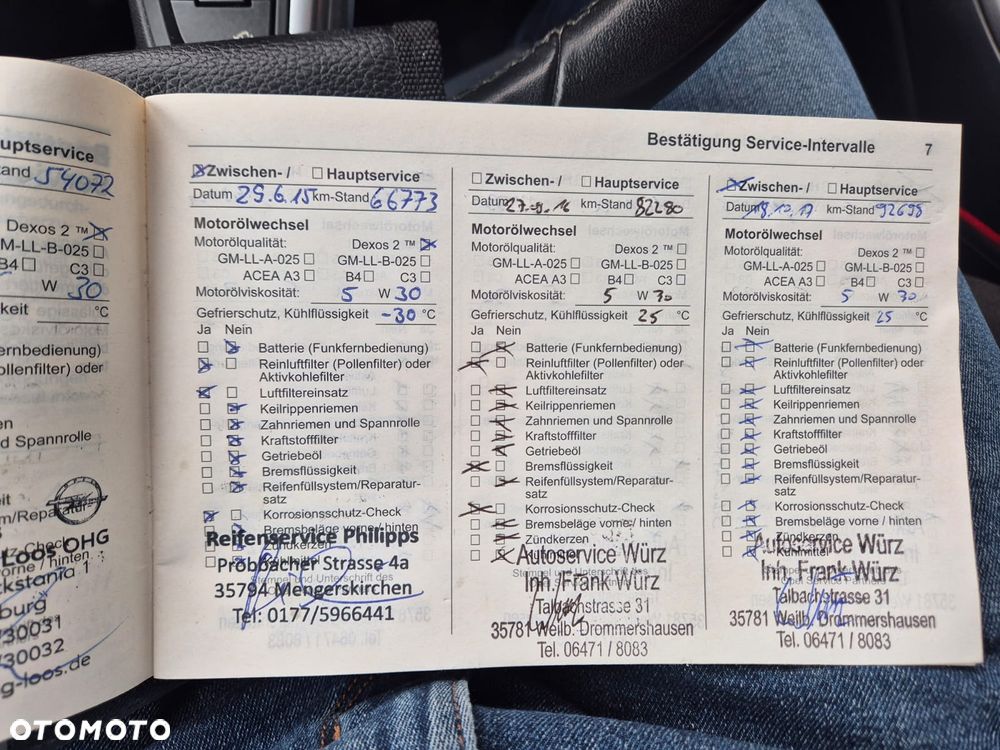 uptservice
tand 54072
Dexos 2 ™
GM-LL-B-025
B4 C3
W 30
keit °C
ernbedienung)
ollenfilter) oder
en
d Spannrolle
eit
m/Reparatur-
Check
vorne / hinten
Loos OHG
kstania 1
burg
/30031
/30032
g-loos.de
Bestätigung Service-Intervalle 7
Zwischen- / Hauptservice
Datum 29.6.15 km-Stand 66773
Motorölwechsel
Motorölqualität: Dexos 2 ™
GM-LL-A-025 GM-LL-B-025
ACEA A3 B4 C3
Motorölviskosität: 5 W 30
Gefrierschutz, Kühlflüssigkeit -30 °C
Ja Nein
Batterie (Funkfernbedienung)
Reinluftfilter (Pollenfilter) oder
Aktivkohlefilter
Luftfiltereinsatz
Keilrippenriemen
Zahnriemen und Spannrolle
Kraftstofffilter
Getriebeöl
Bremsflüssigkeit
Reifenfüllsystem/Reparatur-
satz
Korrosionsschutz-Check
Bremsbeläge vorne / hinten
Zündkerzen
Kühlmittel
Stempel und Unterschrift des
Reifenservice Philipps
Probbacher Strasse 4a
35794 Mengerskirchen
Tel: 0177/5966441
Zwischen- / Hauptservice
Datum 27.9.16 km-Stand 82280
Motorölwechsel
Motorölqualität: Dexos 2 ™
GM-LL-A-025 GM-LL-B-025
ACEA A3 B4 C3
Motorölviskosität: 5 W 30
Gefrierschutz, Kühlflüssigkeit 25 °C
Ja Nein
Batterie (Funkfernbedienung)
Reinluftfilter (Pollenfilter) oder
Aktivkohlefilter
Luftfiltereinsatz
Keilrippenriemen
Zahnriemen und Spannrolle
Kraftstofffilter
Getriebeöl
Bremsflüssigkeit
Reifenfüllsystem/Reparatur-
satz
Korrosionsschutz-Check
Bremsbeläge vorne / hinten
Zündkerzen
Kühlmittel
Stempel und Unterschrift des
Autoservice Würz
Inh. Frank Würz
Talbachstrasse 31
35781 Weilb. Drommershausen
Tel. 06471 / 8083
Zwischen- / Hauptservice
Datum 18.10.17 km-Stand 92698
Motorölwechsel
Motorölqualität: Dexos 2 ™
GM-LL-A-025 GM-LL-B-025
ACEA A3 B4 C3
Motorölviskosität: 5 W 30
Gefrierschutz, Kühlflüssigkeit 25 °C
Ja Nein
Batterie (Funkfernbedienung)
Reinluftfilter (Pollenfilter) oder
Aktivkohlefilter
Luftfiltereinsatz
Keilrippenriemen
Zahnriemen und Spannrolle
Kraftstofffilter
Getriebeöl
Bremsflüssigkeit
Reifenfüllsystem/Reparatur-
satz
Korrosionsschutz-Check
Bremsbeläge vorne / hinten
Zündkerzen
Kühlmittel
Opel Service Partners
Autoservice Würz
Inh. Frank Würz
Talbachstrasse 31
35781 Weilb. Drommershausen
Tel. 06471 / 8083
OTOMOTO